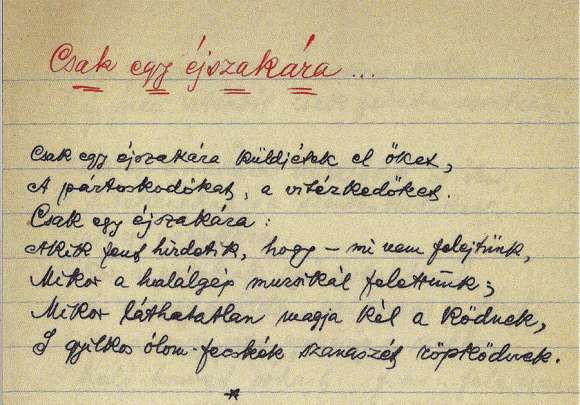 Csak egy éjszakára ...
Csak egy éjszakára küldjétek el őket,
A pártoskodókat, a vitézkedőket.
Csak egy éjszakára:
Akik fent hirdetik, hogy – mi nem felejtünk,
Mikor a halálgép muzsikál felettünk;
Mikor láthatatlan magja kél a ködnek,
S gyilkos ólom-fecskék szanaszét röpködnek.
*